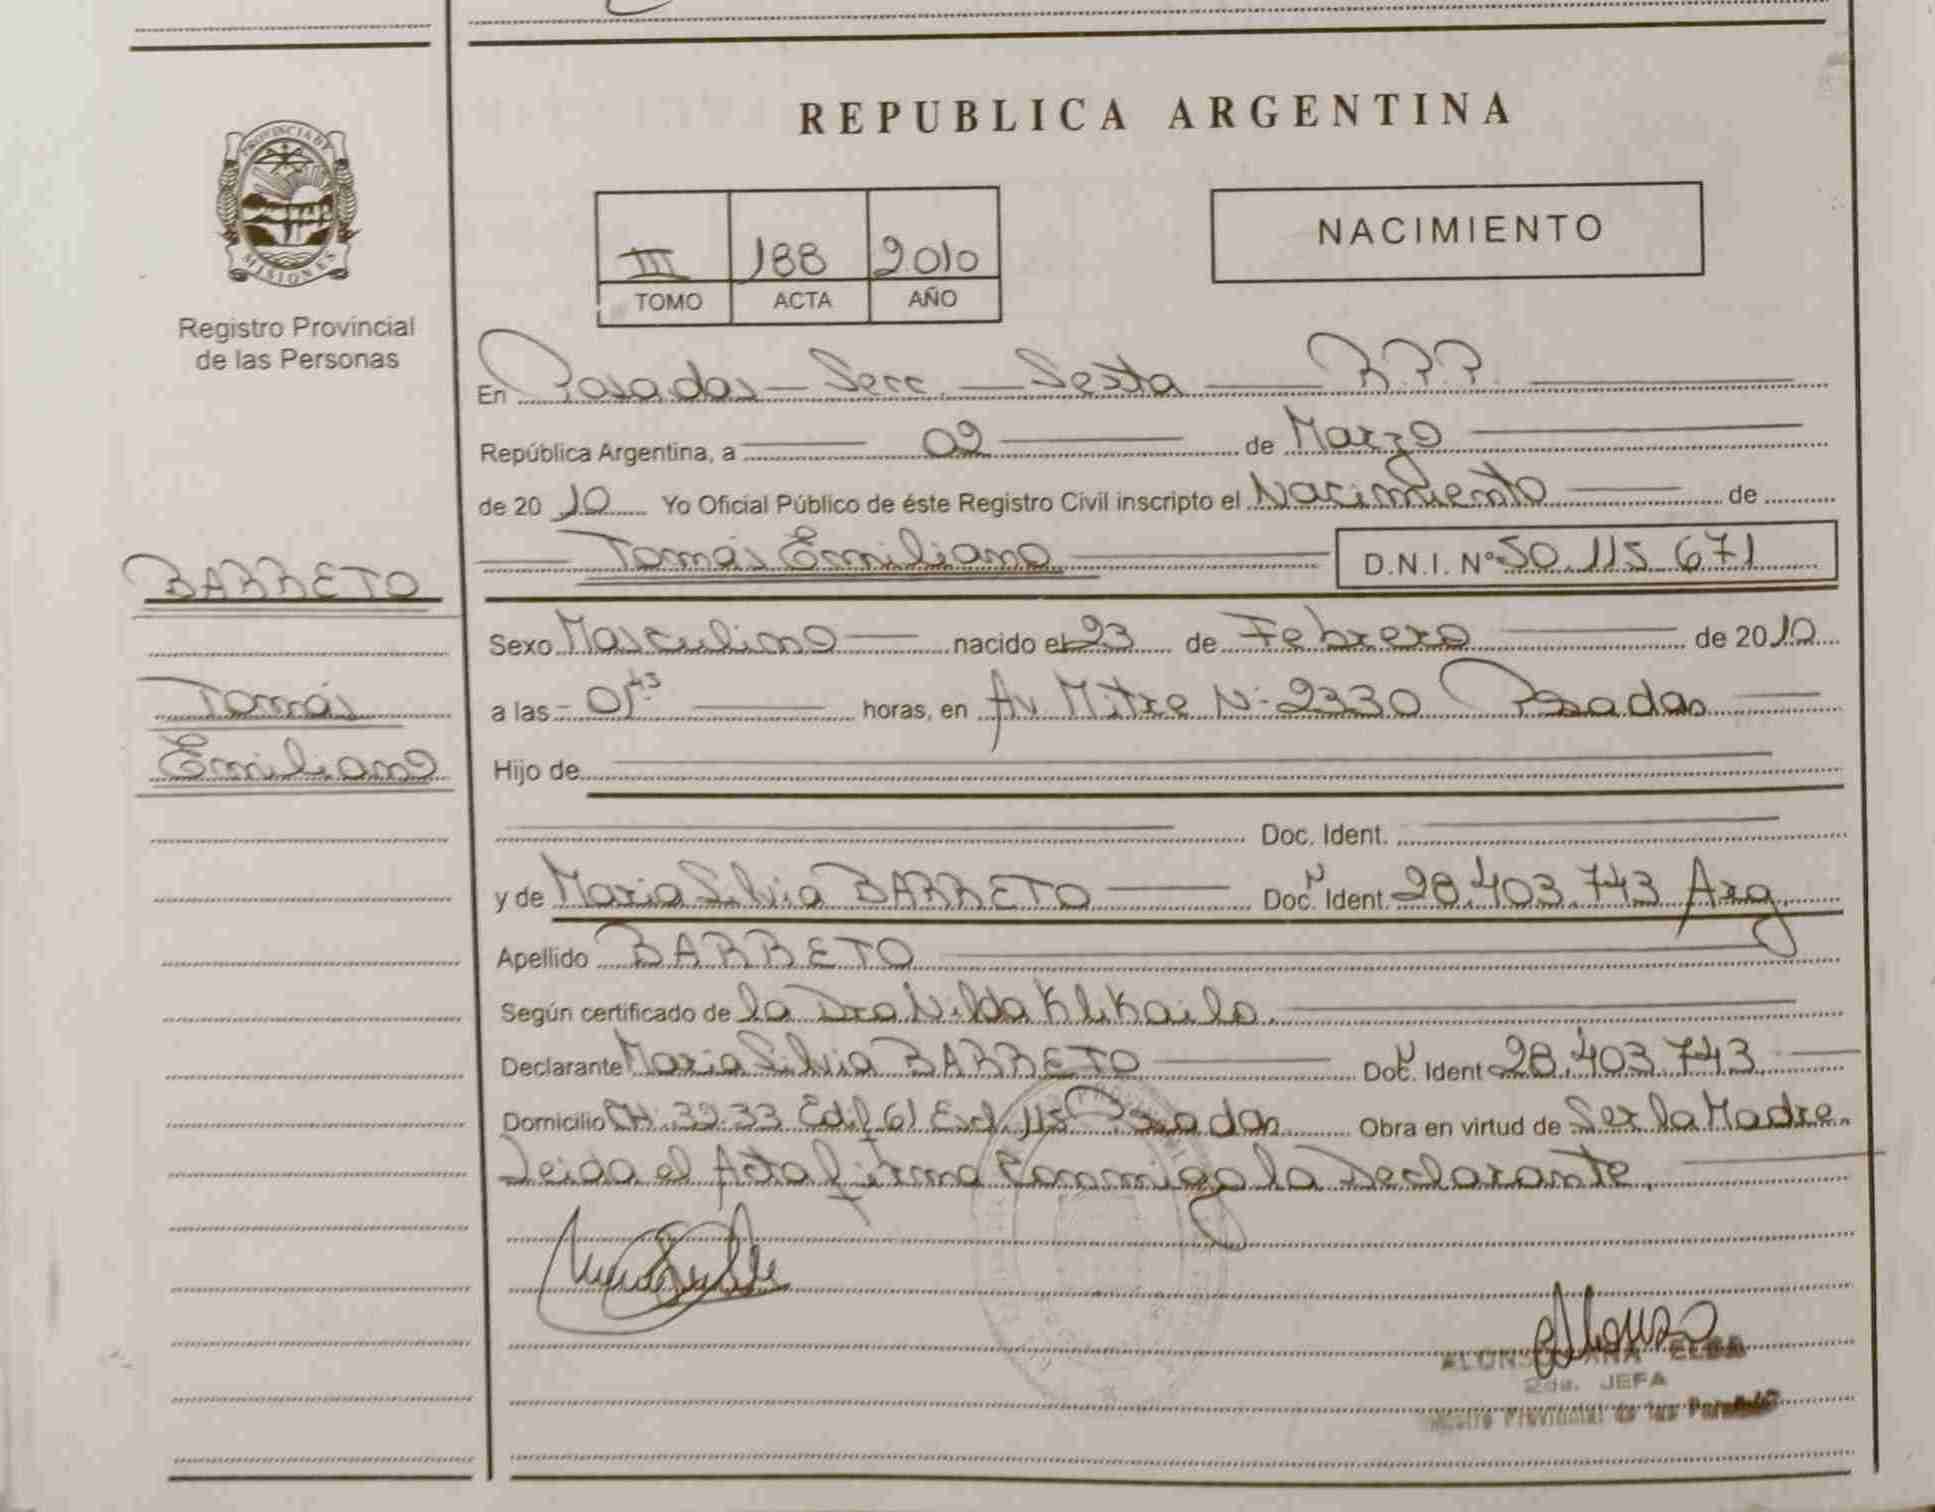 REPUBLICA ARGENTINA
PROVINCIA DE
MISIONES
Registro Provincial
de las Personas
III 188 2010
TOMO ACTA AÑO
NACIMIENTO
En Posadas - Secc. - Sexta R.P.P.
República Argentina, a 02 de Marzo
de 2010 Yo Oficial Público de éste Registro Civil inscripto el Nacimiento de
Tomás Emiliano D.N.I. Nº 50.115.671
BARRETO
Tomás
Emiliano
Sexo Masculino nacido el 23 de Febrero de 2010
a las 01:43 horas, en Av Mitre Nº 2330 Posadas
Hijo de
Doc. Ident.
y de Maria Silvia BARRETO Doc. N Ident. 28.403.743 Arg.
Apellido BARRETO
Según certificado de la Dra Nilda Klikailo.
Declarante Maria Silvia BARRETO Doc. N Ident 28.403.743
Domicilio CH. 32.33 Edif 61 Esc. 115 Posadas Obra en virtud de Ser la Madre.
Leida el Acta firma conmigo la Declarante.
ALONSO ANA ELBA
2da. JEFA
Provincial de las Personas